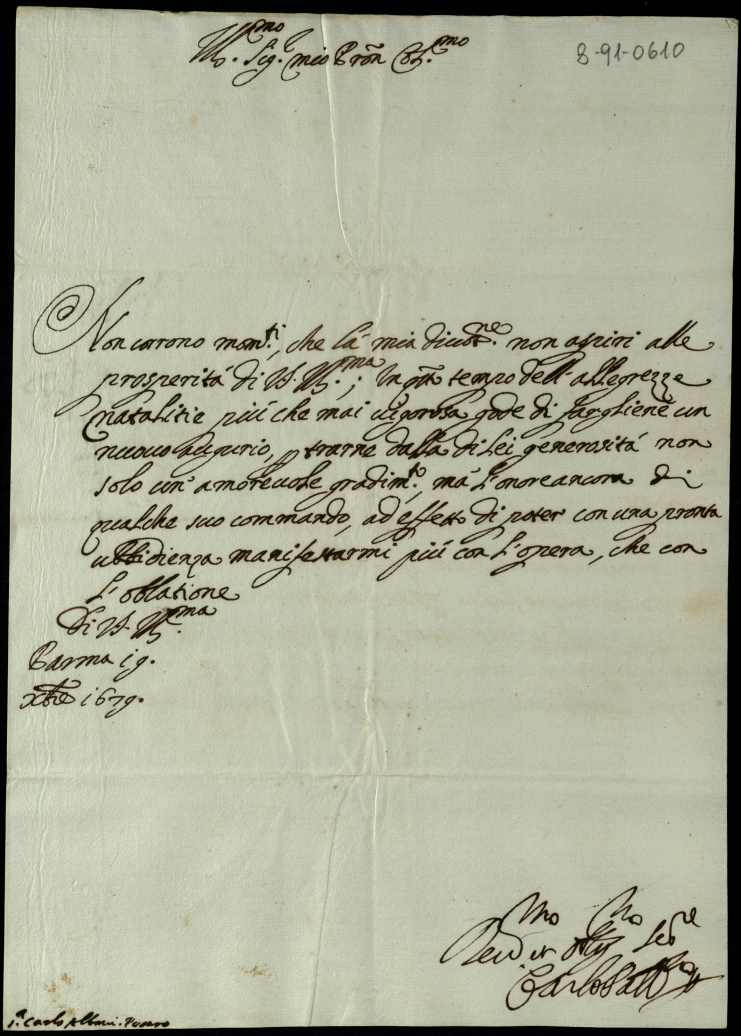 Ill.mo Sig. mio Pron Col.mo
8-91-0610
Non corrono mom.ti, che la mia divot.ne non aspiri alle
prosperitá di V.S. Ill.ma; In qta tempo dell'allegrezze
natalitie piú che mai vigorosa gode di fargliene un
nuovo augurio, p trarne dalla di Lei generositá non
solo un'amorevole gradim.to, má l'onore ancora di
qualche suo commando, ad effetto di poter con una pronta
ubbidienza manifestarmi piú con l'opera, che con
l'oblatione
Di V.S. Ill.ma
Parma 19.
Xbre 1679.
Dev.mo et Obl.mo Ser.re
Carlo
S.r Carlo Albani. Pesaro